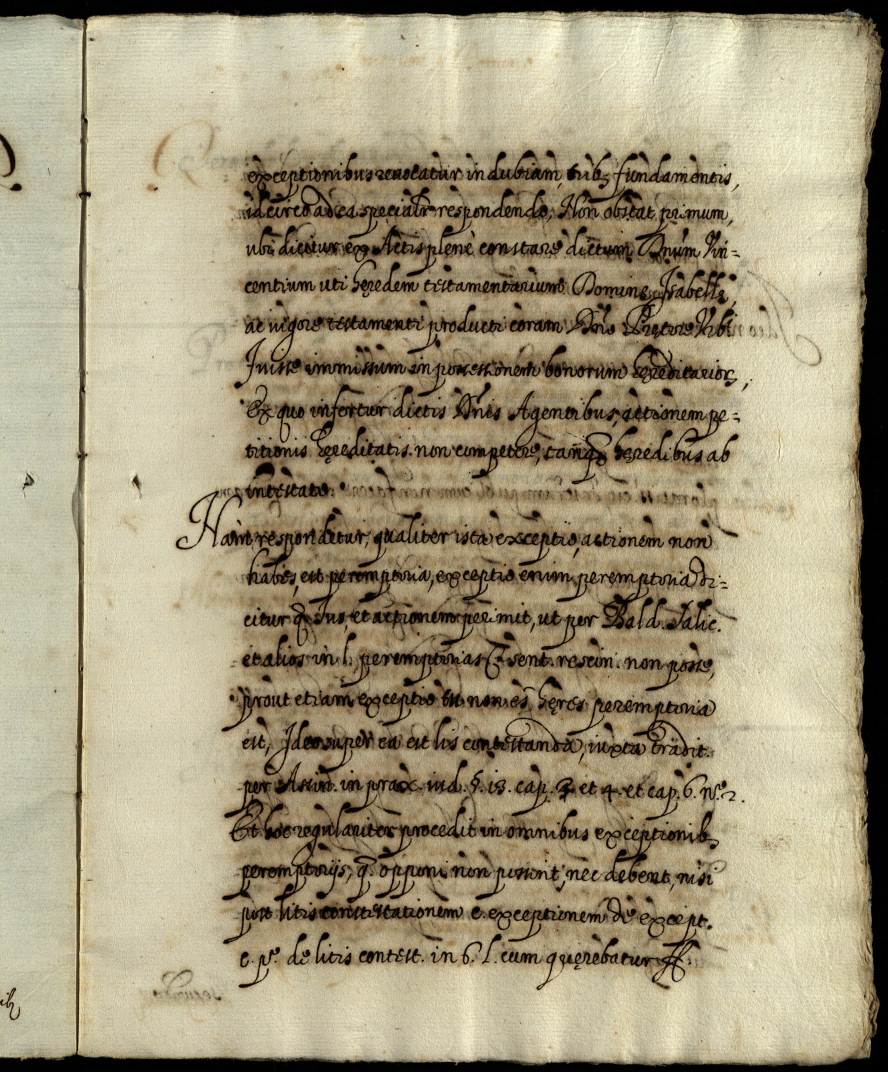 exceptionibus reuocatur in dubium, tribꝫ fundamentis,
idcirco ad ea specialr̃ respondendo, Non obstat primum,
ubi dicitur ex Actis plenè constare dictum Dñum Vin=
centium uti hęredem testamentarium Dominę Isabellę,
ac uigore testamenti producti coram Dño Prętore Vrbi
fuisse immissum in possessionem bonorum hęreditarior,
Ex quo infertur dictis Dñis Agentibus, actionem pe=
titionis hęreditatis non competere, tamq̃ hęredibus ab
intestato.
Nam respondetur, qualiter ista exceptio, actionem non
habes, est peremptoria, exceptio enim peremptoria di=
citur q̃ Ius, et actionem perimit, ut per Bald. Salic.
et alios in l. peremptorias C. sent. rescin. non posse,
prout etiam exceptio tu non es hęres peremptoria
est, Ideo super ea est lis contestanda, iuxta tradit.
per Assin. in prax. iud. §. 13. cap. 3. et 4. et cap. 6. nº. 2.
Et hoc regulariter procedit in omnibus exceptionibꝫ
peremptorijs, q. opponi non possunt, nec debent, nisi
post litis contestationem c. exceptionem de except.
c. pº. de litis contest. in 6. l. cum quęrebatur ff.